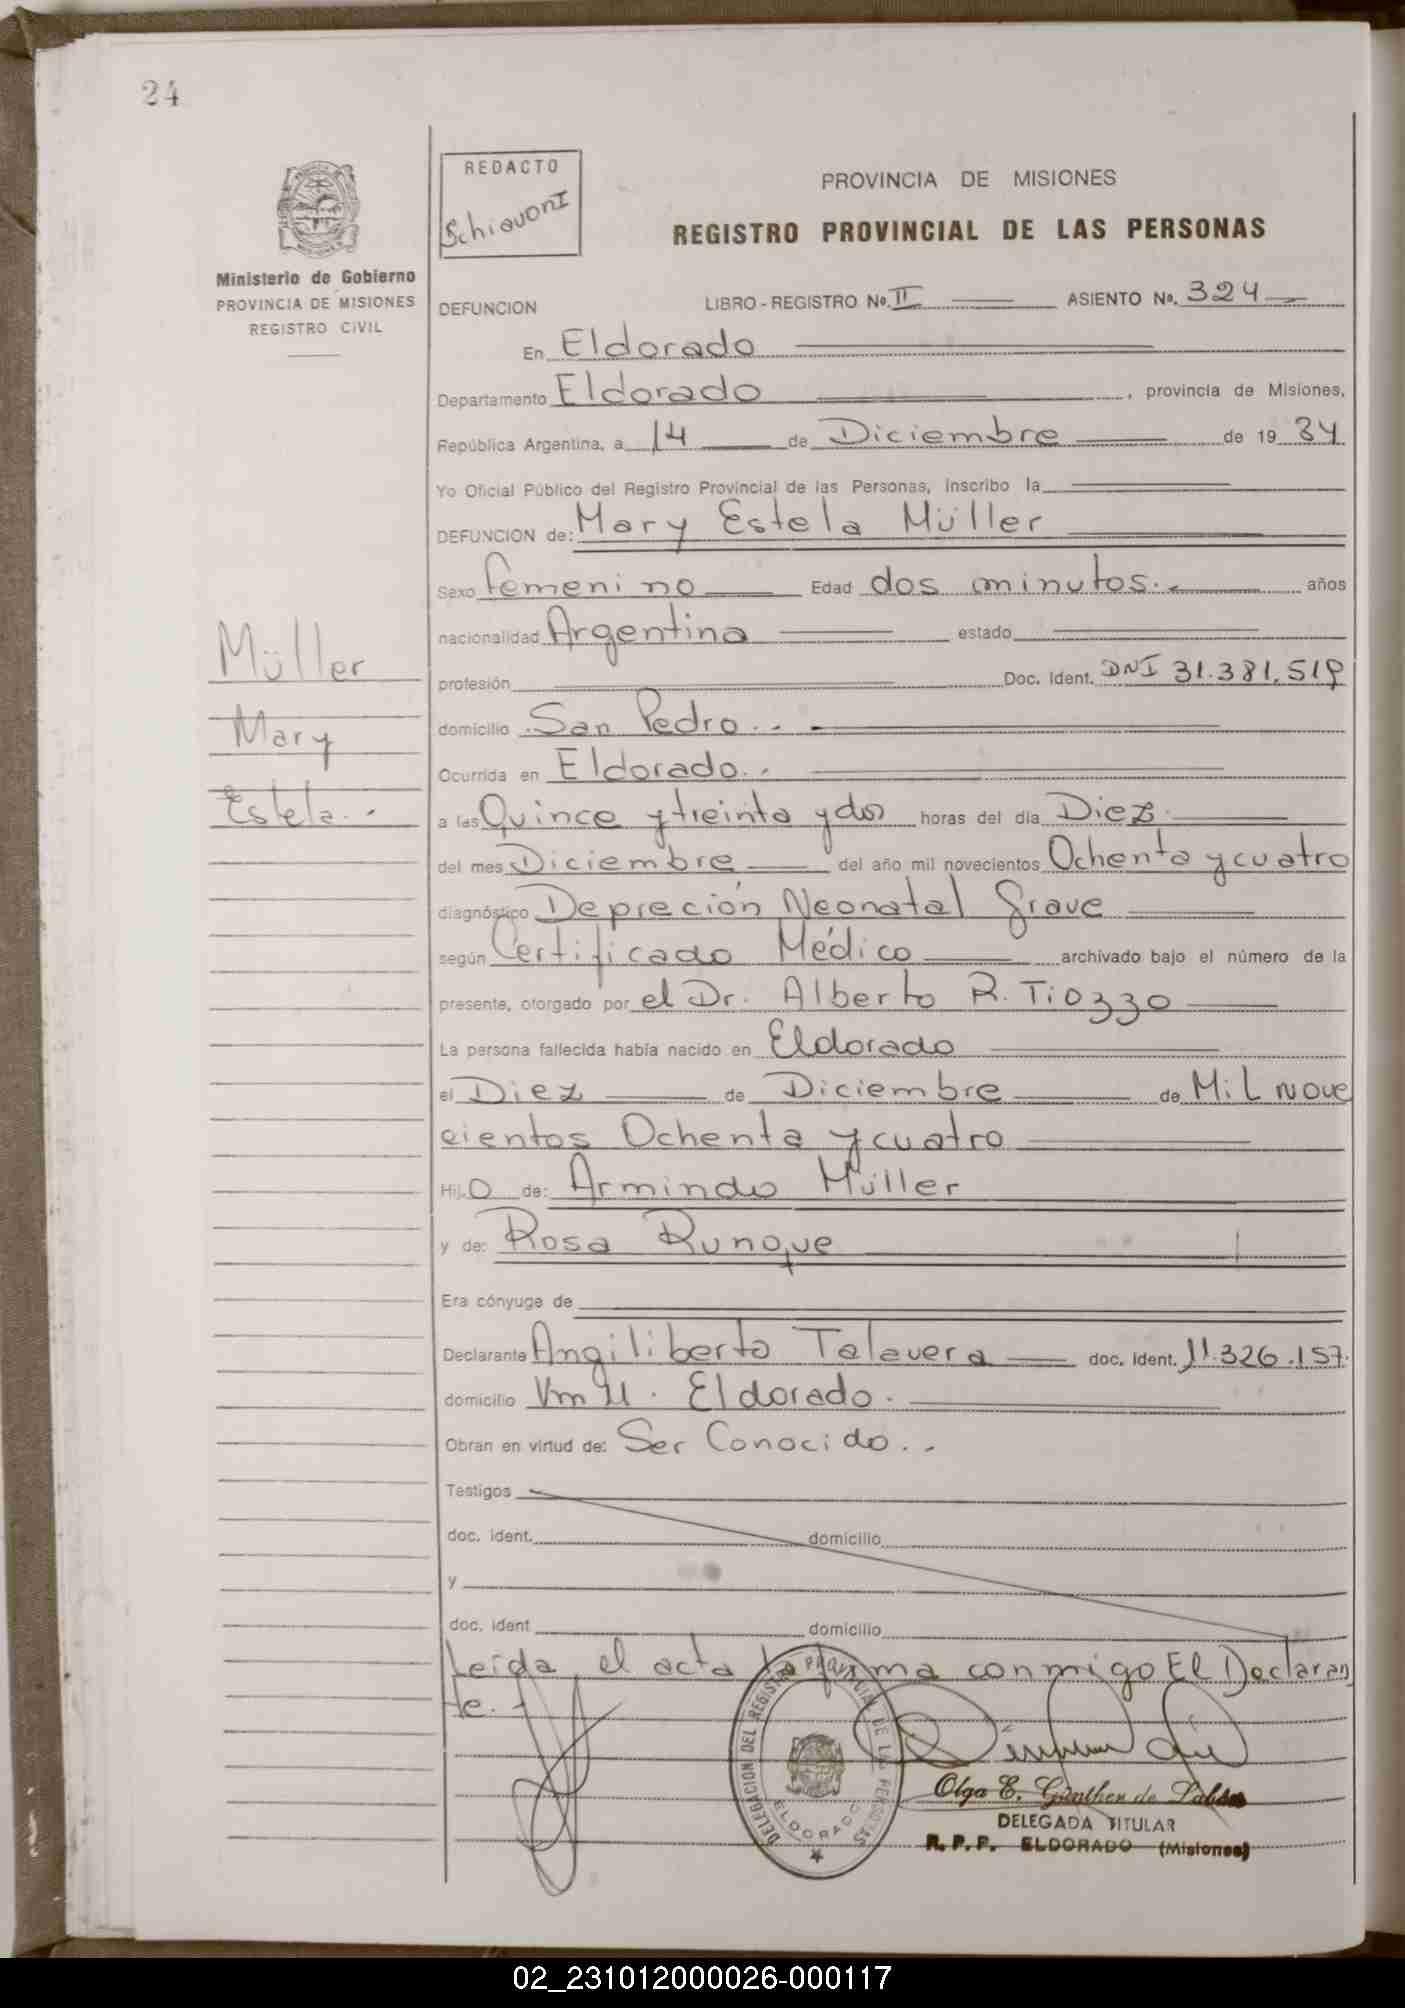 24
REDACTO
Schiavoni
PROVINCIA DE MISIONES
REGISTRO PROVINCIAL DE LAS PERSONAS
Ministerio de Gobierno
PROVINCIA DE MISIONES
REGISTRO CIVIL
DEFUNCION LIBRO - REGISTRO No. II ASIENTO No. 324
En Eldorado
Departamento Eldorado, provincia de Misiones,
República Argentina, a 14 de Diciembre de 19 84
Yo Oficial Público del Registro Provincial de las Personas, inscribo la
DEFUNCION de: Mary Estela Müller
Sexo femenino Edad dos minutos.- años
nacionalidad Argentina estado
profesión Doc. Ident. DNI 31.381.519
domicilio San Pedro..-
Ocurrida en Eldorado..
a las Quince y treinta y dos horas del día Diez
del mes Diciembre del año mil novecientos Ochenta y cuatro
diagnóstico Depreción Neonatal Grave
según Certificado Médico archivado bajo el número de la
presente, otorgado por el Dr. Alberto R. Tiozzo
La persona fallecida había nacido en Eldorado
el Diez de Diciembre de Mil nove
cientos Ochenta y cuatro
Hij o de: Armindo Müller
y de: Rosa Runque
Era cónyuge de
Declarante Angiliberto Talavera doc. ident. 11.326.157.
domicilio Km 11. Eldorado.
Obran en virtud de: Ser Conocido..
Testigos
doc. ident. domicilio
y
doc. ident domicilio
Leída el acta la firma conmigo El Declaran
te.-
Müller
Mary
Estela..
DELEGACION DEL REGISTRO PROVINCIAL DE LAS PERSONAS
ELDORADO
Olga E. Günther de
DELEGADA TITULAR
R. P. P. ELDORADO (Misiones)
02_231012000026-000117